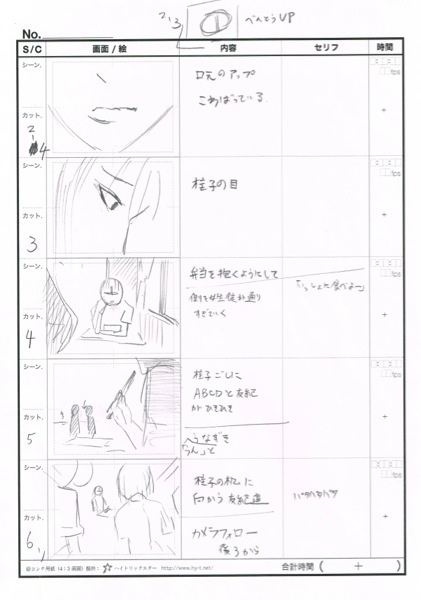 2,3 べんとうUP
No.
S/C 画面 / 絵 内容 セリフ 時間
シーン.
口元のアップ
こわばっている.
fps
カット.
2-4
+
シーン.
桂子の目
fps
カット.
3
+
シーン.
弁当を抱くようにして
「いっしょに食べよー」
fps
カット.
4
すぎていく
+
シーン.
桂子ごしに
ABCDと友紀
fps
カット.
5
うなずき
「うん」と
+
シーン.
桂子の机に
向かう友紀達
fps
カット.
6
カメラフォロー
後ろから
+
絵コンテ用紙 (4:3 画面) 提供: ヘイトリックスター http://www.hy-t.net/
合計時間 ( + )